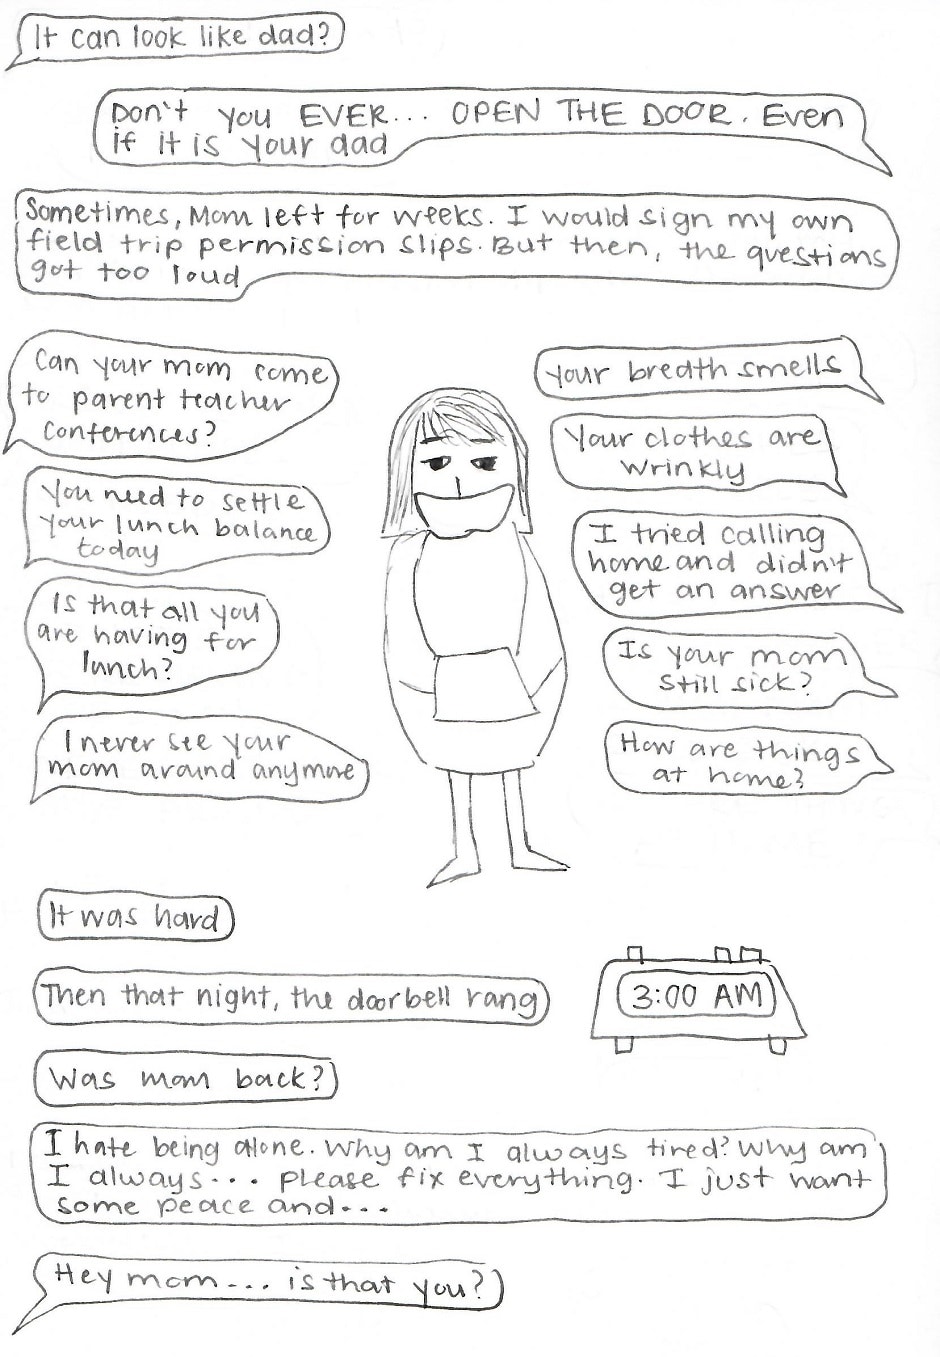 It can look like dad?
Don't you EVER... OPEN THE DOOR. Even
if it is your dad
Sometimes, Mom left for weeks. I would sign my own
field trip permission slips. But then, the questions
got too loud
Can your mom come
to parent teacher
conferences?
You need to settle
your lunch balance
today
Is that all you
are having for
lunch?
I never see your
mom around anymore
Your breath smells
Your clothes are
wrinkly
I tried calling
home and didn't
get an answer
Is your mom
still sick?
How are things
at home?
It was hard
Then that night, the doorbell rang
3:00 AM
Was mom back?
I hate being alone. Why am I always tired? Why am
I always... please fix everything. I just want
some peace and...
Hey mom... is that you?